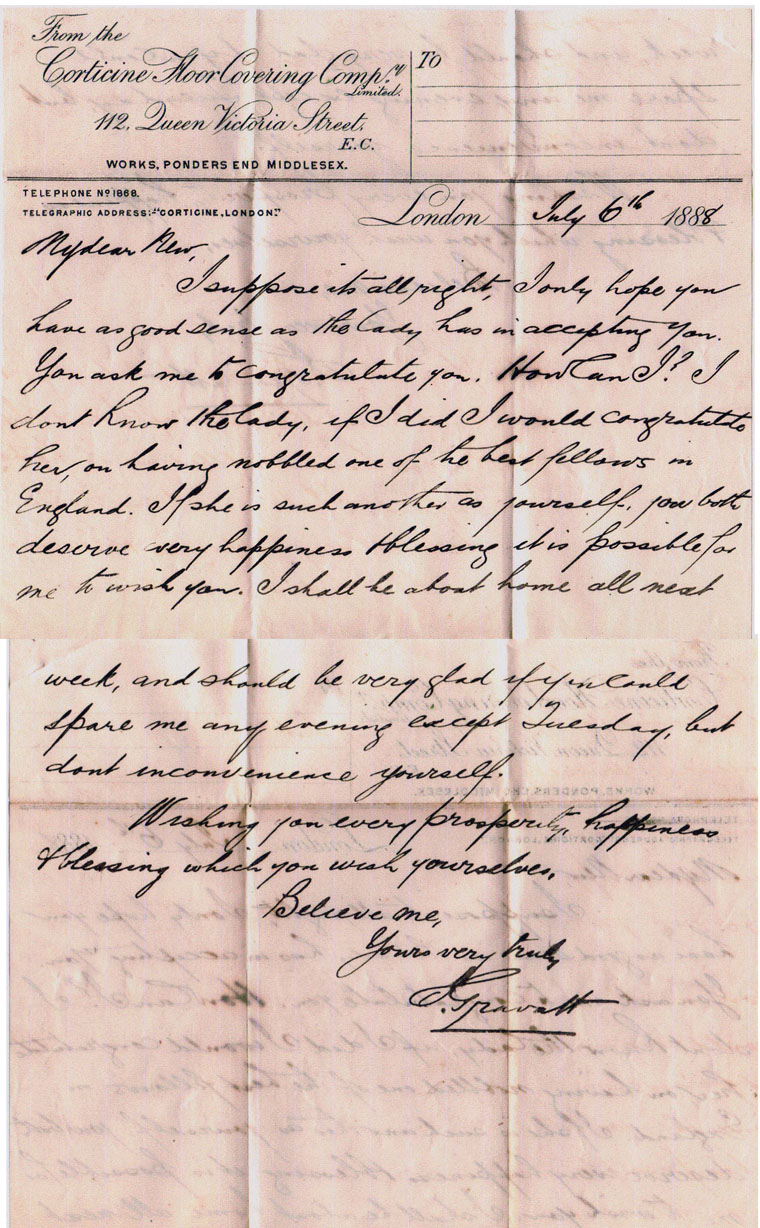 From the
Corticine Floor Covering Compy.
Limited.
112, Queen Victoria Street,
E.C.
WORKS, PONDERS END MIDDLESEX.
To
TELEPHONE No 1868.
TELEGRAPHIC ADDRESS:-"CORTICINE, LONDON."
London July 6th 1888
My dear Rew,
I suppose its all right, I only hope you
have as good sense as the Lady has in accepting you.
You ask me to congratulate you. How Can I? I
dont know the lady, if I did I would congratulate
her, on having nobbled one of the best fellows in
England. If she is such another as yourself, you both
deserve every happiness & blessing it is possible for
me to wish you. I shall be about home all next
week, and should be very glad if you could
spare me any evening except Tuesday, but
dont inconvenience yourself.
Wishing you every prosperity, happiness
& blessing which you wish yourselves.
Believe me,
Yours very truly
Gravatt